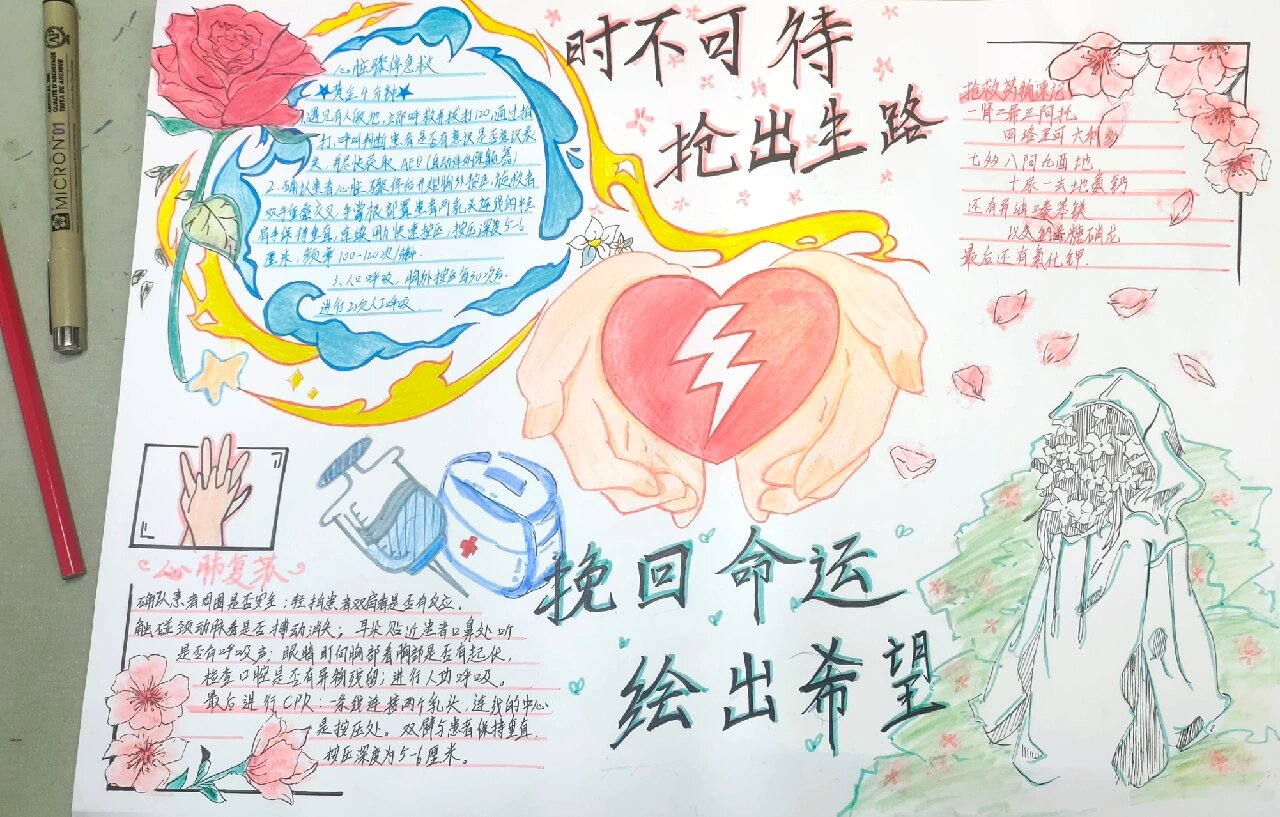 时不可待
抢出生路
心脏骤停急救
★黄金4分钟★
1.遇见有人倒地,立即呼救并拨打120,通过拍
打、呼叫判断患者是否有意识是否意识丧
失,并尽快获取AED(自动体外除颤器)
2.确认患者心脏骤停后开始胸外按压,施救者
双手重叠交叉,手掌根部置患者两乳头连线的中点
肩手保持垂直,连续用力快速按压,按压深度5-6
厘米,频率100-120次/分钟.
3.人口呼吸,胸外按压每30次后.
进行2次人工呼吸
抢救药物速记
一肾二异三阿托
四洛五可六利多
七多八间九西地
十尿一去地塞钙
还有异油嗪苯镁
最后还有氯化钾.
心肺复苏
确认患者周围是否安全;轻拍患者双肩看是否有反应,
触碰颈动脉看是否搏动消失;耳朵贴近患者口鼻处听
是否有呼吸声;眼睛盯向胸部看胸部是否有起伏,
检查口腔是否有异物残留;进行人功呼吸。
最后进行CPR:一条线连接两个乳头,连线的中心
是按压处。双臂与患者保持垂直,
按压深度为5-6厘米。
挽回命运
绘出希望
MICRON 01